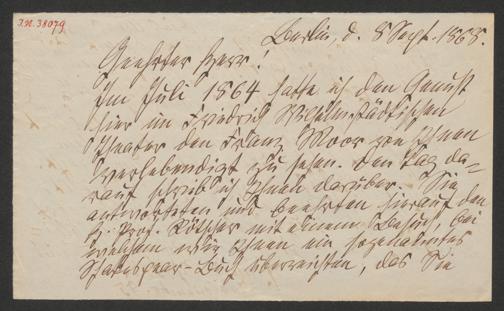 I.N. 38079
Berlin, d. 8 Sept. 1868.
Geehrter Herr!
Im Juli 1864 hatte ich den Genuß
hier im Friedrich Wilhelmstädtischen
Theater den Franz Moor von Ihnen
verlebendigt zu sehen. Den Tag da=
rauf schrieb ich Ihnen darüber. Sie
antworteten und beehrten hierauf den
H. Prof. Rötscher mit einem Besuch, bei
welchem wir Ihnen ein sogenanntes
Shakespear-Buch überreichten, das Sie